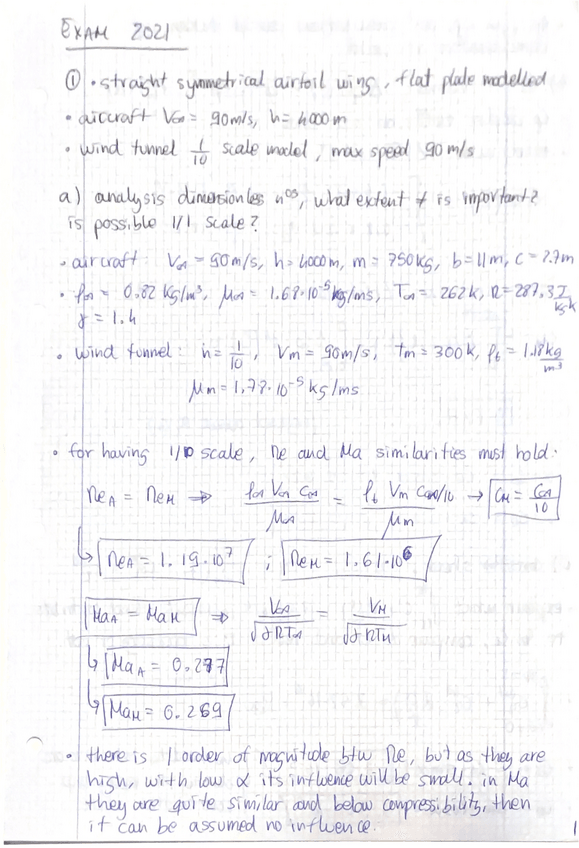 EXAM 2021
① • straight symmetrical airfoil wing, flat plate modelled
• aircraft V∞ = 90m/s, h = 4000m
• wind tunnel 1/10 scale model, max speed 90 m/s
a) analysis dimensionless nºs, what extent ≠ is important?
is possible 1/1 scale?
• aircraft: V∞ = 90m/s, h = 4000m, m = 750kg, b = 11m, c = 2.7m
• ρ∞ = 0.82 kg/m³, μ∞ = 1.68·10⁻⁵ kg/ms, T∞ = 262k, R = 287,3 J/kgk
γ = 1.4
• wind tunnel: n = 1/10, Vm = 90m/s, tm = 300k, ρt = 1.18 kg/m³
μm = 1,78·10⁻⁵ kg/ms
• for having 1/10 scale, Re and Ma similarities must hold:
ReA = ReM ⇒ ρ∞ V∞ C∞/μA = ρt Vm C∞/10/μm → CM = C∞/10
↳ ReA = 1.19·10⁷ ; ReM = 1.61·10⁶
MaA = MaM ⇒ V∞/√γRTA = VM/√γRTM
↳ MaA = 0.277
↳ MaM = 0.259
• there is 1 order of magnitude btw Re, but as they are
high, with low α its influence will be small. in Ma
they are quite similar and below compressibility, then
it can be assumed no influence.
1